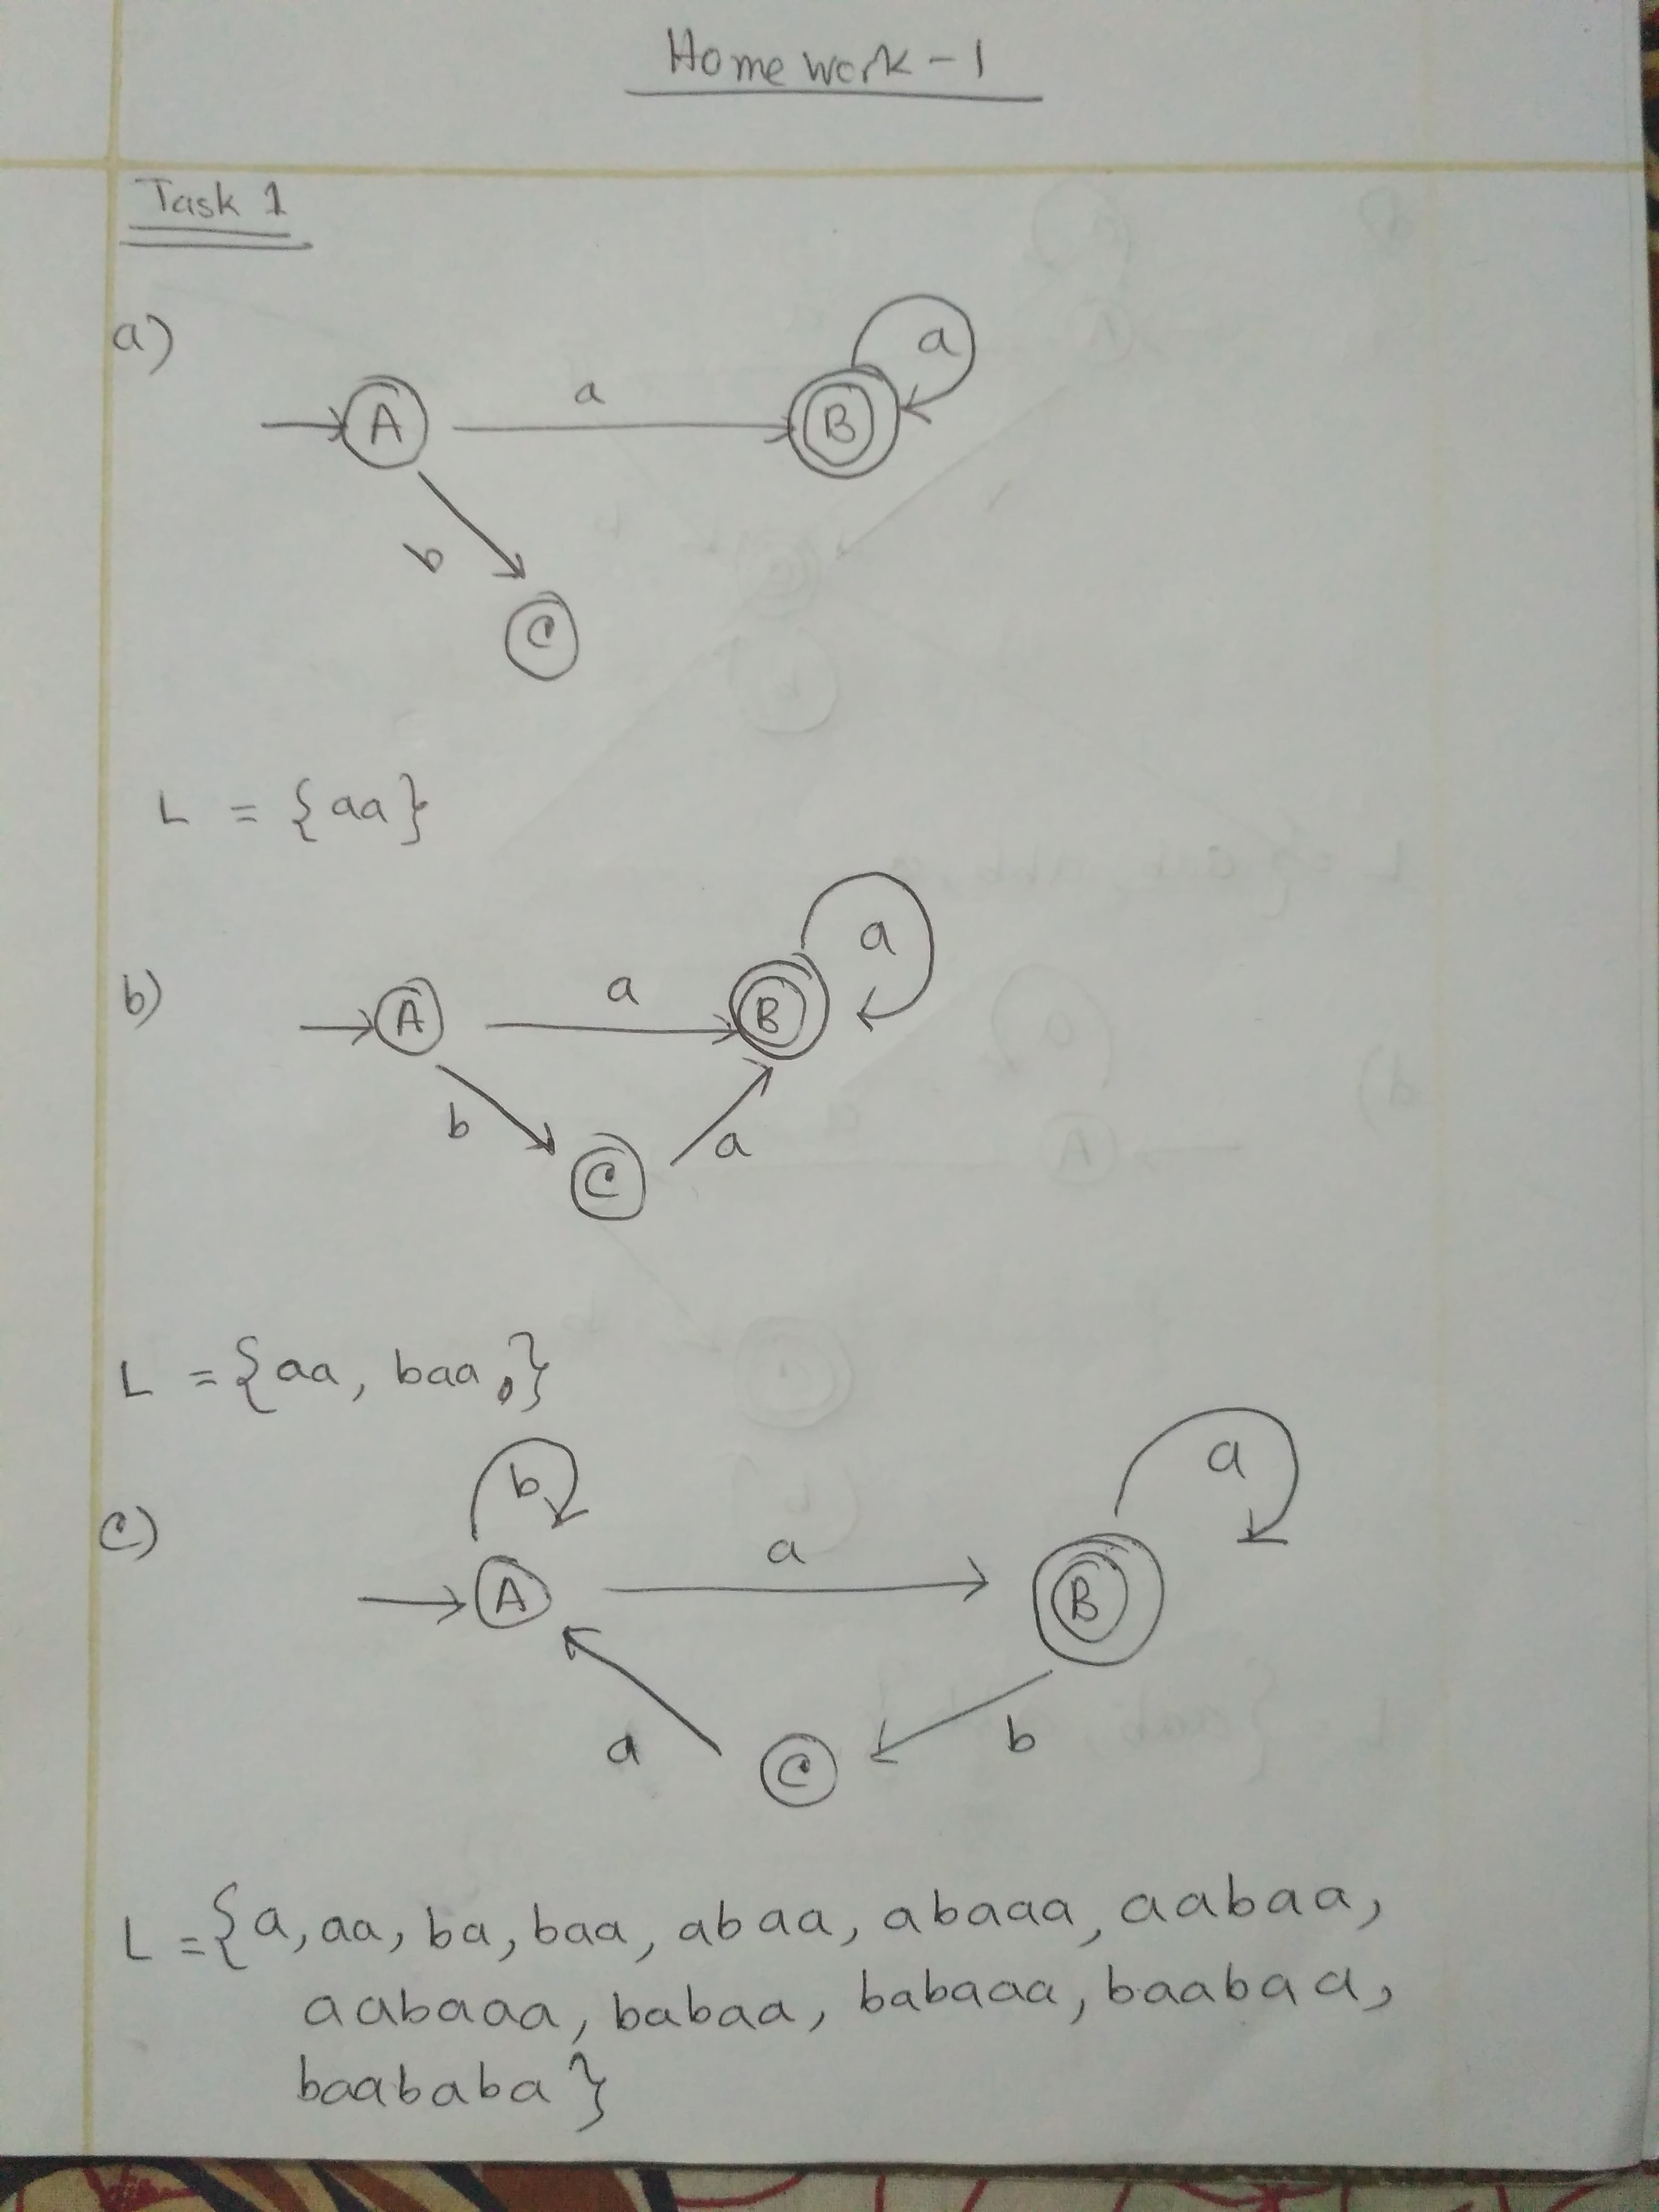 Home work - 1
Task 1
a)
a
A
a
B
b
C
L = {aa}
b)
a
A
a
B
b
a
C
L = {aa, baa,}
b
a
c)
a
A
B
a
b
C
L = {a, aa, ba, baa, abaa, abaaa, aabaa,
aabaaa, babaa, babaaa, baabaa,
baababa}